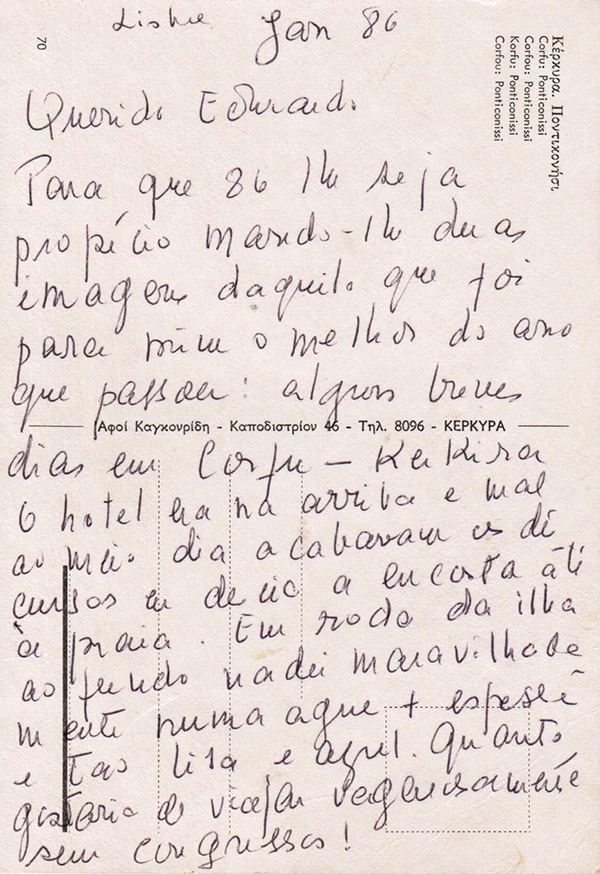 70
Κέρκυρα. Ποντικονήσι
Corfu: Ponticonissi
Corfou: Ponticonissi
Korfu: Ponticonissi
Corfou: Ponticonissi
Lisboa Jan 86
Querido Eduardo
Para que 86 lhe seja
propício mando-lhe duas
imagens daquilo que foi
para mim o melhor do ano
que passou: alguns breves
Ἀφοί Καγκουρίδη - Καποδιστρίου 46 - Τηλ. 8096 - ΚΕΡΚΥΡΑ
dias em Corfu — Kerkira
O hotel era na arriba e mal
ao meio dia acabavam os dis
cursos eu descia a encosta até
à praia. Em roda da ilha
ao fundo nadei maravilhosa
mente numa agua + espessa
e tão lisa e azul. Quanto
gostaria de viajar vagarosamente
sem congressos!